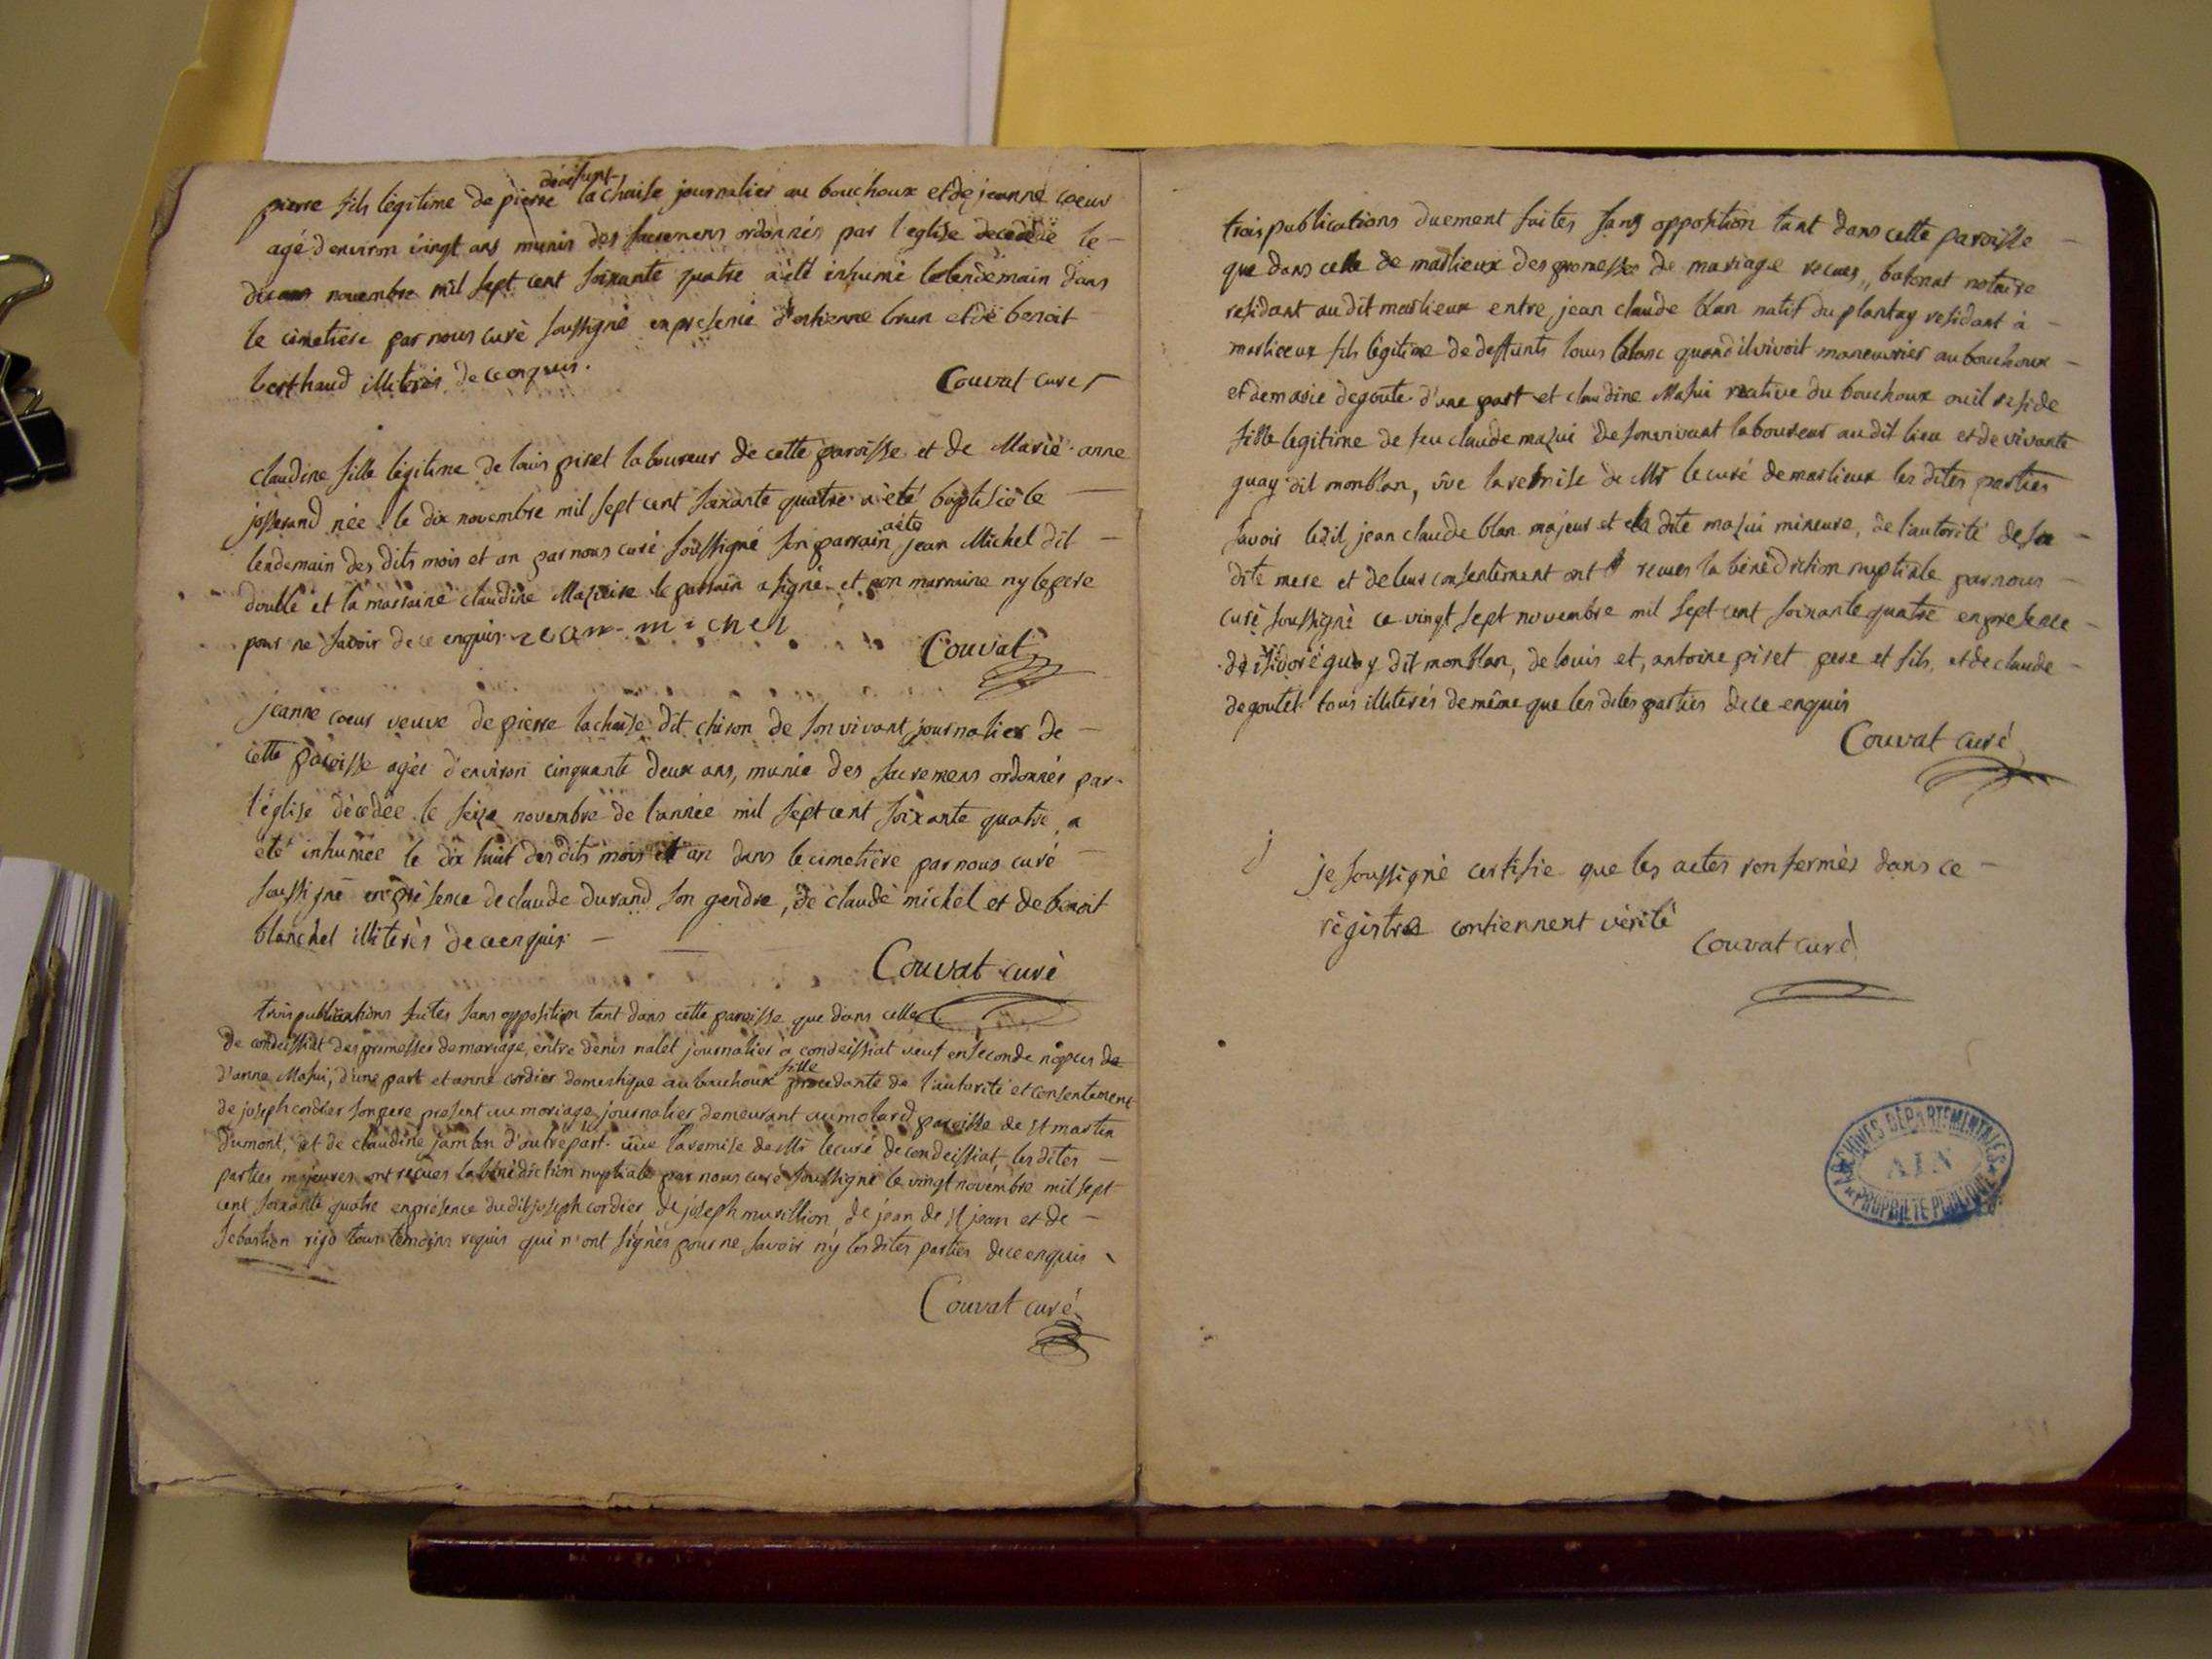 deffunt
pierre fils légitime de pierre lachaise journalier au bouchoux et de jeanne coeur
agé d'environ vingt ans munis des sacremens ordonnés par l'eglise decedé le
dix novembre mil sept cent soixante quatre a été inhumé le lendemain dans
le cimetiere par nous curé soussigné en presence d'estienne brun et de benoit
berthaud illiterés de ce enquis.
Couvat curé
claudine fille légitime de louis piset laboureur de cette paroisse et de Marie anne
josserand née le dix novembre mil sept cent soixante quatre a été baptisée le
lendemain des dits mois et an par nous curé soussigné son parrain a été jean Michel dit
double et la marraine claudine Mazuire le parrain a signé et non marraine ny le pere
pour ne savoir de ce enquis jean michel
Couvat
jeanne coeur veuve de pierre lachaise dit chiron de son vivant journalier de
cette paroisse agée d'environ cinquante deux ans, munie des sacremens ordonnés par
l'église décedée le seize novembre de l'année mil sept cent soixante quatre a
été inhumée le dix huit des dits mois et an dans le cimetière par nous curé
soussigné en présence de claude durand son gendre, de claude michel et de benoit
blanchel illiterés de ce enquis
Couvat curé
trois publications faites sans opposition tant dans cette paroisse que dans celle
de condeissiat des promesses de mariage, entre denis nalet journalier a condeissiat veuf en seconde nopces de
d'anne Masui, d'une part et anne cordier domestique au bouchoux fille procedante de l'autorité et consentement
de joseph cordier son pere present au mariage journalier demeurant au molard paroisse de st martin
dumont, et de claudine jambon d'autre part. vüe la remise de Mr le curé de condeissiat, les dites
parties majeures ont reçues la bénédiction nuptiale par nous curé soussigné le vingt novembre mil sept
cent soixante quatre en présence du dit joseph cordier de joseph murillion, de jean de st jean et de
sebastien rigo tous temoins requis qui n'ont signés pour ne savoir n'y les dites parties de ce enquis
Couvat curé
trois publications duement faites sans opposition tant dans cette paroisse
que dans celle de marlieux des promesses de mariage recues, batonat notaire
residant au dit marlieux entre jean claude blan natif du plantay residant à
marlieux fils légitime de deffunts louis blanc quand il vivoit manouvrier au bouchoux
et de marie degoute d'une part et claudine Masui native du bouchoux ou il reside
fille legitime de feu claude mazui de son vivant laboureur au dit lieu et de vivante
guay dit monblan, vûe la remise de Mr le curé de marlieux les dites parties
savoir ledit jean claude blan majeur et la dite mazui mineure, de l'autorité de sa
dite mere et de leur consentement ont recues la bénédiction nuptiale par nous
curé soussigné ce vingt sept novembre mil sept cent soixante quatre en presence
de isidore guay dit monblan, de louis et, antoine piset pere et fils, et de claude
degoutet tous illiterés de même que les dites parties de ce enquis
Couvat curé
je soussigné certifie que les actes renfermés dans ce
régistre contiennent vérité
Couvat curé
ARCHIVES DÉPARTEMENTALES
AIN
PROPRIÉTÉ PUBLIQUE